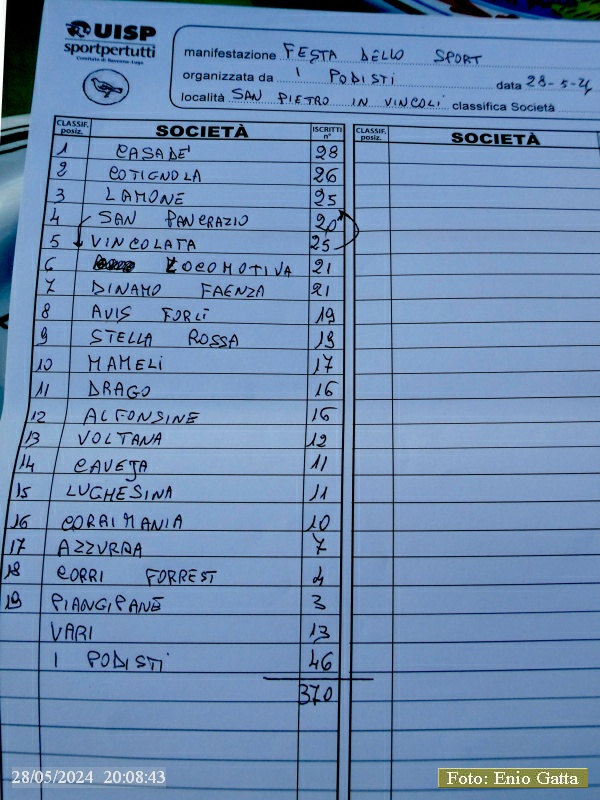 UISP
sportpertutti
Comitato di Ravenna-Lugo
manifestazione FESTA DELLO SPORT
organizzata da I PODISTI data 28-5-24
località SAN PIETRO IN VINCOLI classifica Società
CLASSIF. posiz. SOCIETÀ ISCRITTI n° CLASSIF. posiz. SOCIETÀ
1 CASADE' 28
2 COTIGNOLA 26
3 LAMONE 25
4 SAN PANCRAZIO 20
5 VINCOLATA 25
6 LOCOMOTIVA 21
7 DINAMO FAENZA 21
8 AVIS FORLÌ 19
9 STELLA ROSSA 19
10 MAMELI 17
11 DRAGO 16
12 ALFONSINE 16
13 VOLTANA 12
14 CAVEJA 11
15 LUGHESINA 11
16 CORRIMANIA 10
17 AZZURRA 7
18 CORRI FORREST 4
19 PIANGIPANE 3
VARI 13
I PODISTI 46
370
28/05/2024 20:08:43
Foto: Enio Gatta